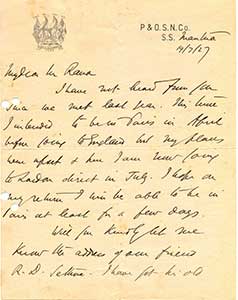 P & O. S. N. Co.
S. S. Mantua
4/7/27
My dear Mr Rana
I have not heard from you
since we met last year. This time
I intended to be in Paris in April
before going to England but my plans
were upset & here I am now going
to London direct in July. I hope on
my return I will be able to be in
Paris at least for a few days.
Will you kindly let me
know the address of your friend
R. D. I have got his old